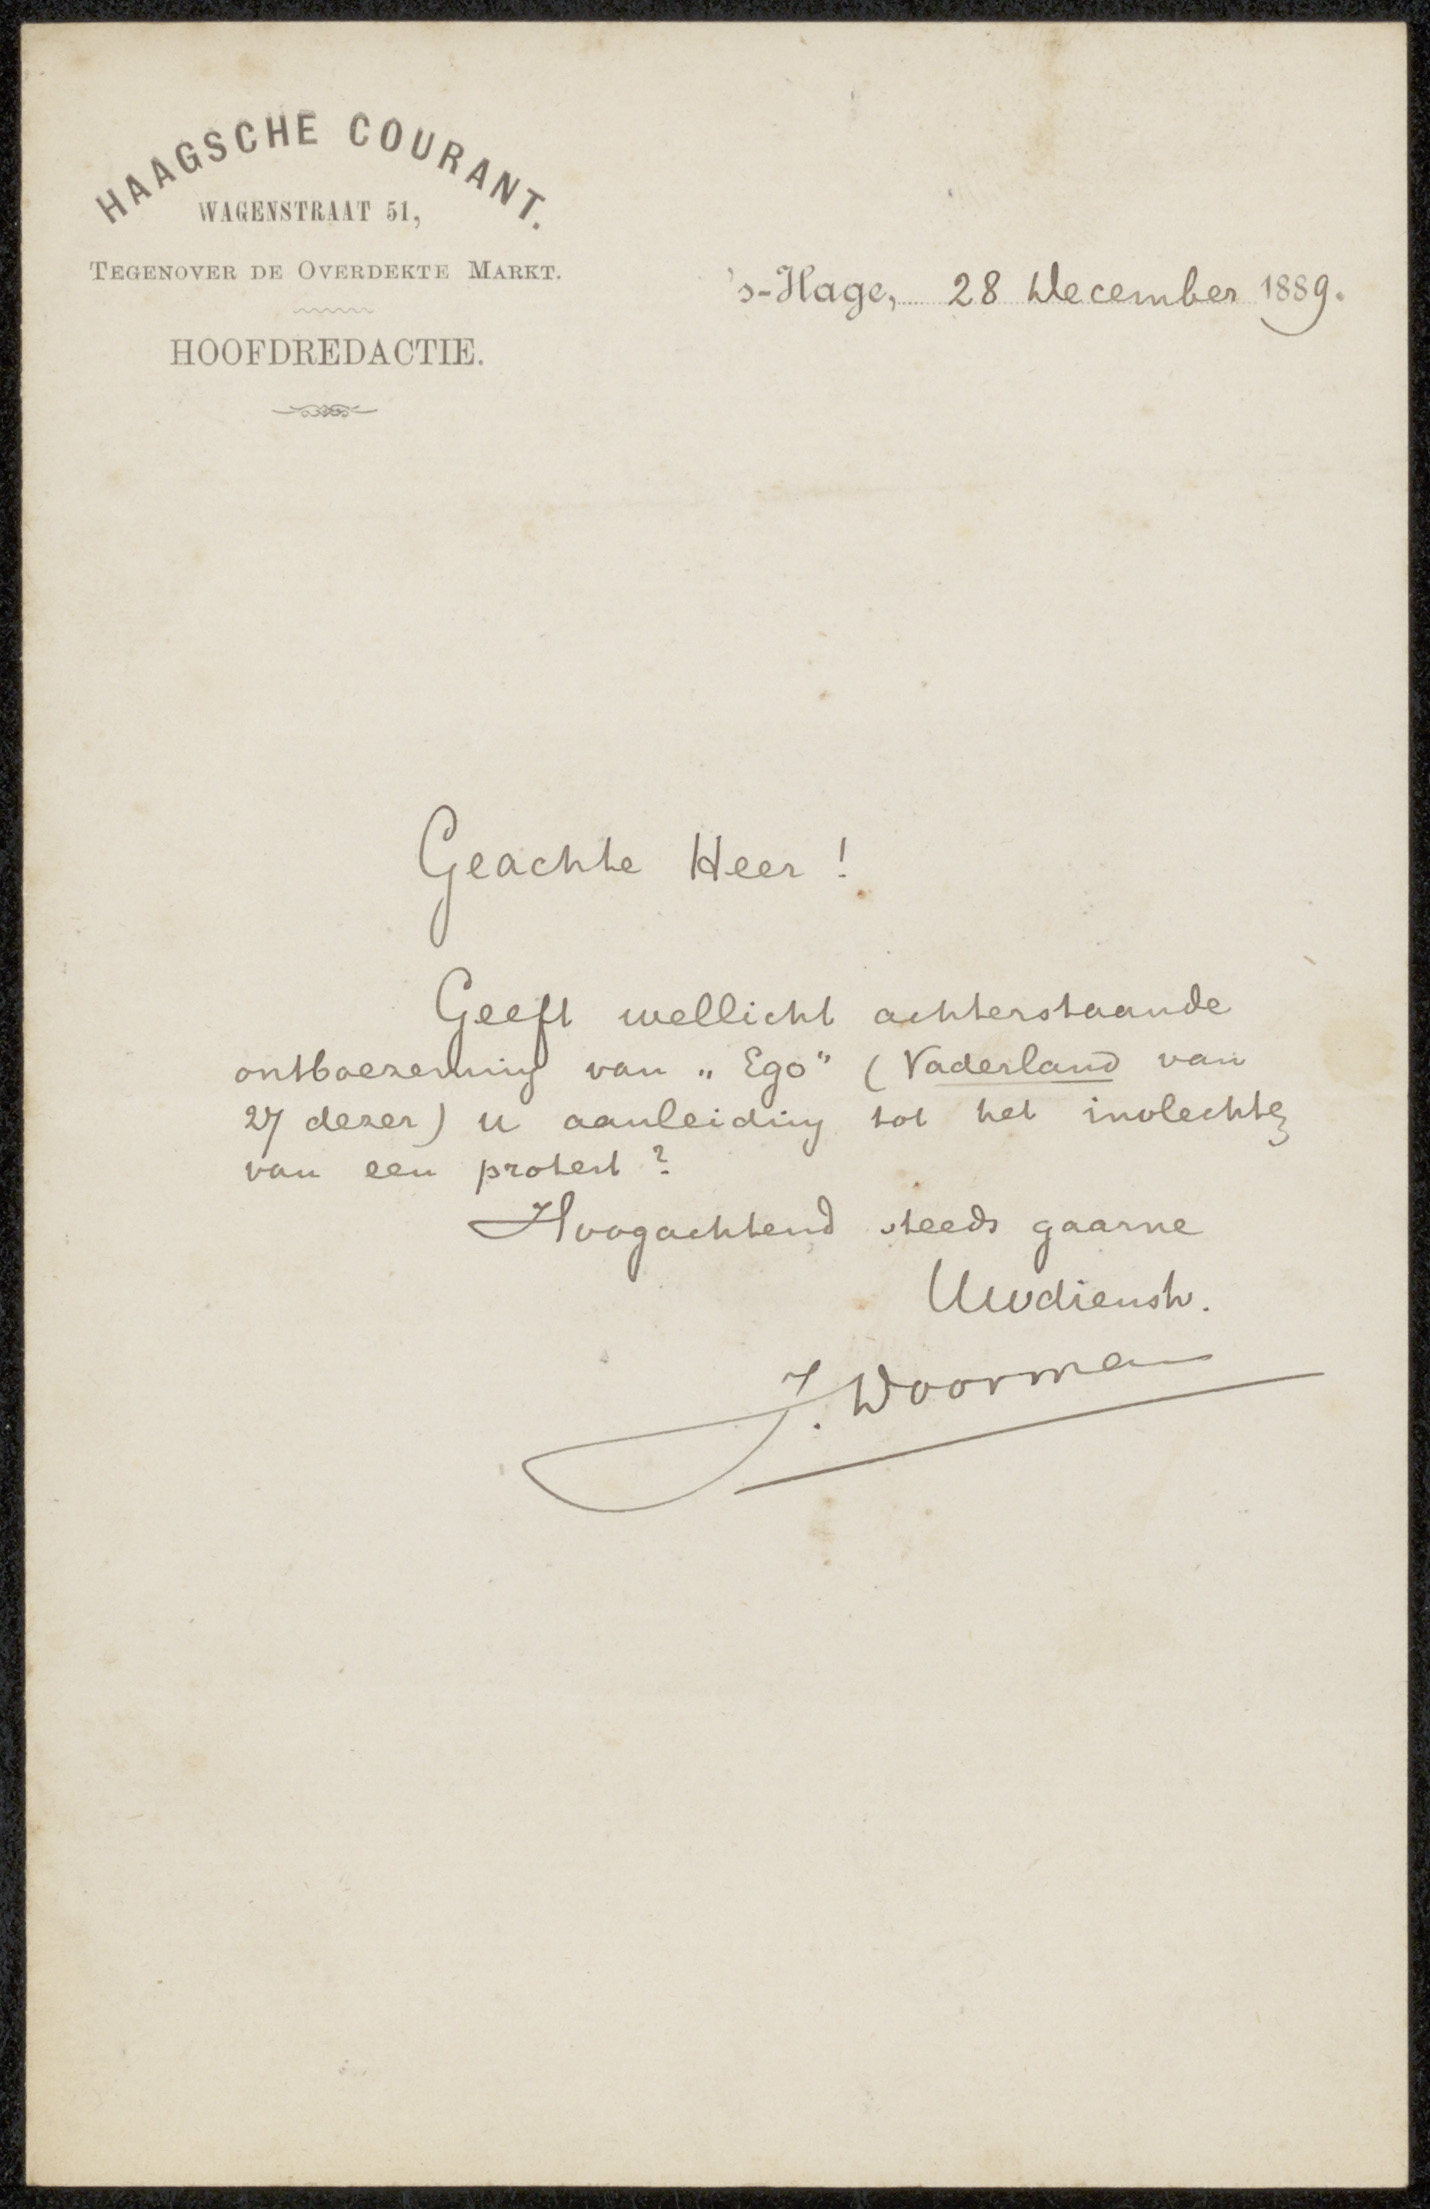 HAAGSCHE COURANT.
WAGENSTRAAT 51,
TEGENOVER DE OVERDEKTE MARKT.
HOOFDREDACTIE.
's-Hage, 28 December 1889.
Geachte Heer!
Geeft wellicht achterstaande
ontboezeming van „Ego" (Vaderland van
27 dezer) u aanleiding tot het invlechten
van een protest?
Hoogachtend steeds gaarne
Uwdienstw.
J. Doorman